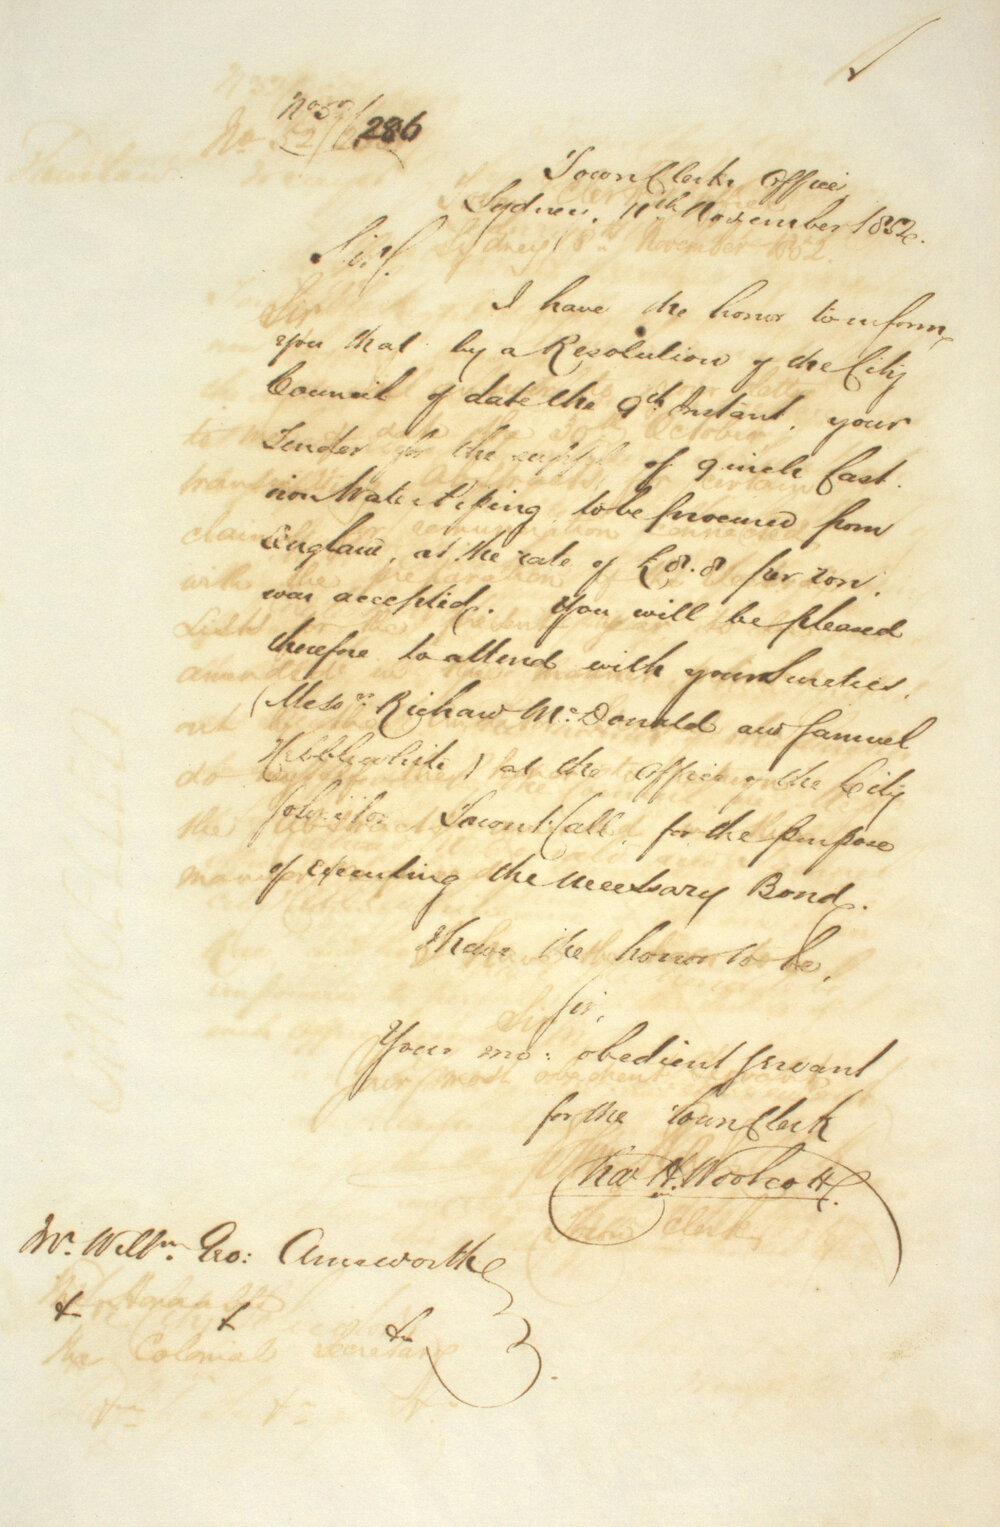 No 52/286
Town Clerks Office
Sydney, 11th November 1852.
Sir,
I have the honor to inform
you that by a Resolution of the City
Council of date the 9th Instant, your
Tender for the supply of 9 inch Cast
iron Water Piping, to be procured from
England, at the rate of £8.8 per ton,
was accepted. You will be pleased
therefore to attend with your Sureties,
(Messrs Richard McDonald and Samuel
Hebblewhite) at the Office of the City
Solicitor Town Hall, for the purpose
of executing the necessary Bond.
I have the honor to be,
Sir,
Your mo: obedient servant
for the Town Clerk
Chas H. Woolcott
Mr. Willm. Geo: Ainsworth
&c &c &c